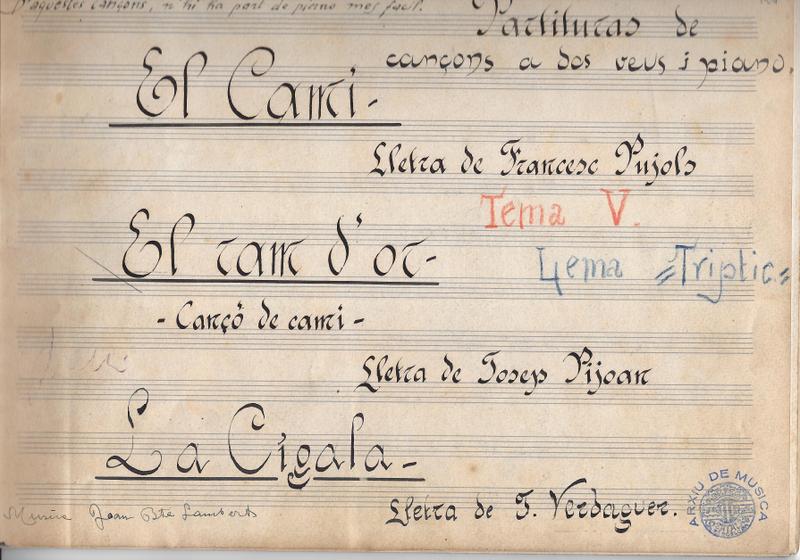 D'aquestes cançons, n'hi ha part de piano mes facil.
Partituras de
cançons a dos veus i piano.
El Cami-
Lletra de Francesc Pujols
Tema V.
El ram d'or-
Lema "Triptic"
- Cançó de cami -
Lletra de Josep Pijoan
La Cigala-
Lletra de J. Verdaguer.
Musica Joan Bta Lambert
ARXIU DE MUSICA